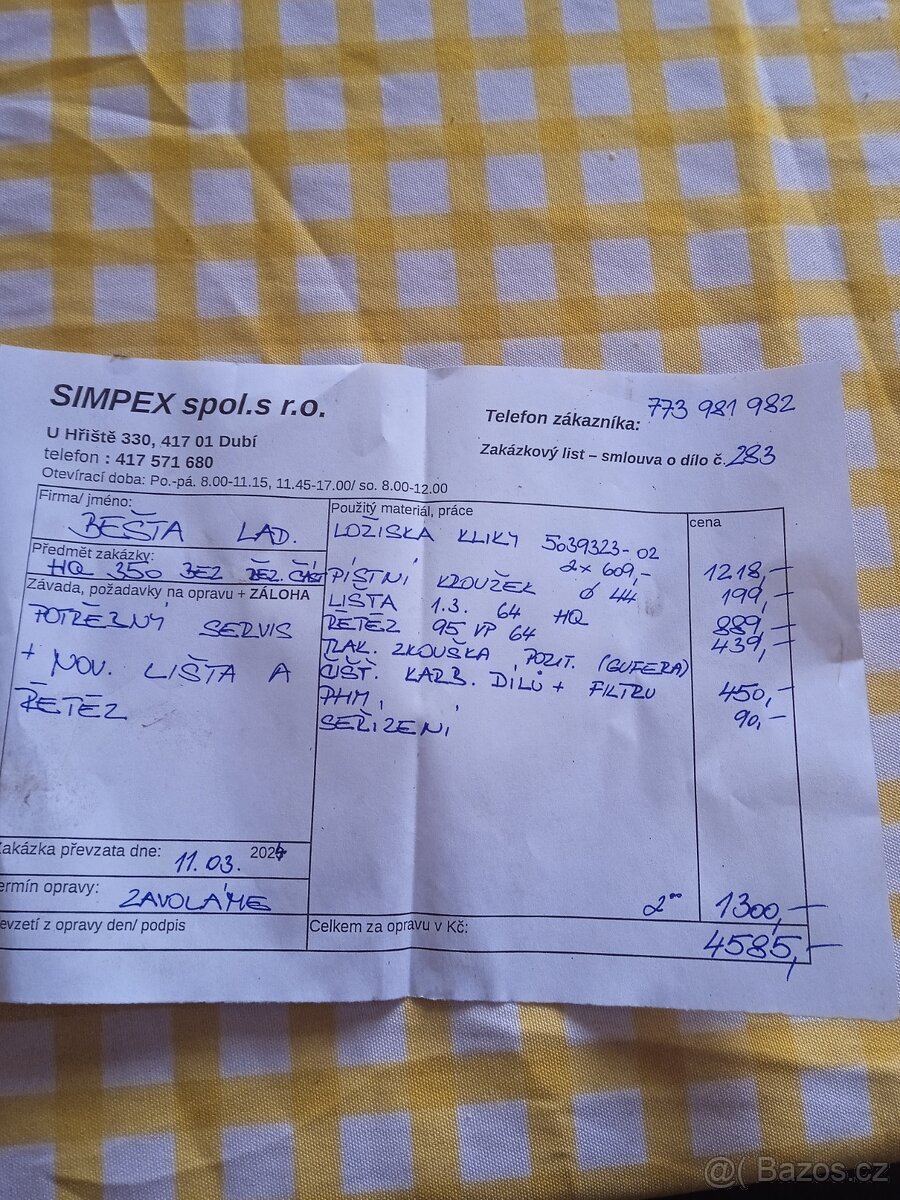 SIMPEX spol.s r.o.
U Hřiště 330, 417 01 Dubí
telefon : 417 571 680
Otevírací doba: Po.-pá. 8.00-11.15, 11.45-17.00/ so. 8.00-12.00
Telefon zákazníka: 773 981 982
Zakázkový list – smlouva o dílo č. 283
Firma/ jméno:
BEŠTA LAD.
Předmět zakázky:
HQ 350 BEZ ŘEZ. ČÁSTI
Závada, požadavky na opravu + ZÁLOHA
POTŘEBNÝ SERVIS
+ NOV. LIŠTA A
ŘETĚZ
Použitý materiál, práce
cena
LOŽISKA KLIKY 5039323-02
2x 609,- 1218,-
PÍSTNÍ KROUŽEK Ø 44 199,-
LIŠTA 1.3. 64 HQ 889,-
ŘETĚZ 95 VP 64 439,-
TLAK. ZKOUŠKA POZIT. (GUFERA)
ČIŠŤ. KARB. DÍLŮ + FILTRU 450,-
PHM, 90,-
SEŘÍZENÍ
2°° 1300,-
akázka převzata dne: 11.03. 2024
ermín opravy: ZAVOLÁME
evzetí z opravy den/ podpis
Celkem za opravu v Kč: 4585,-
@( Bazos.cz